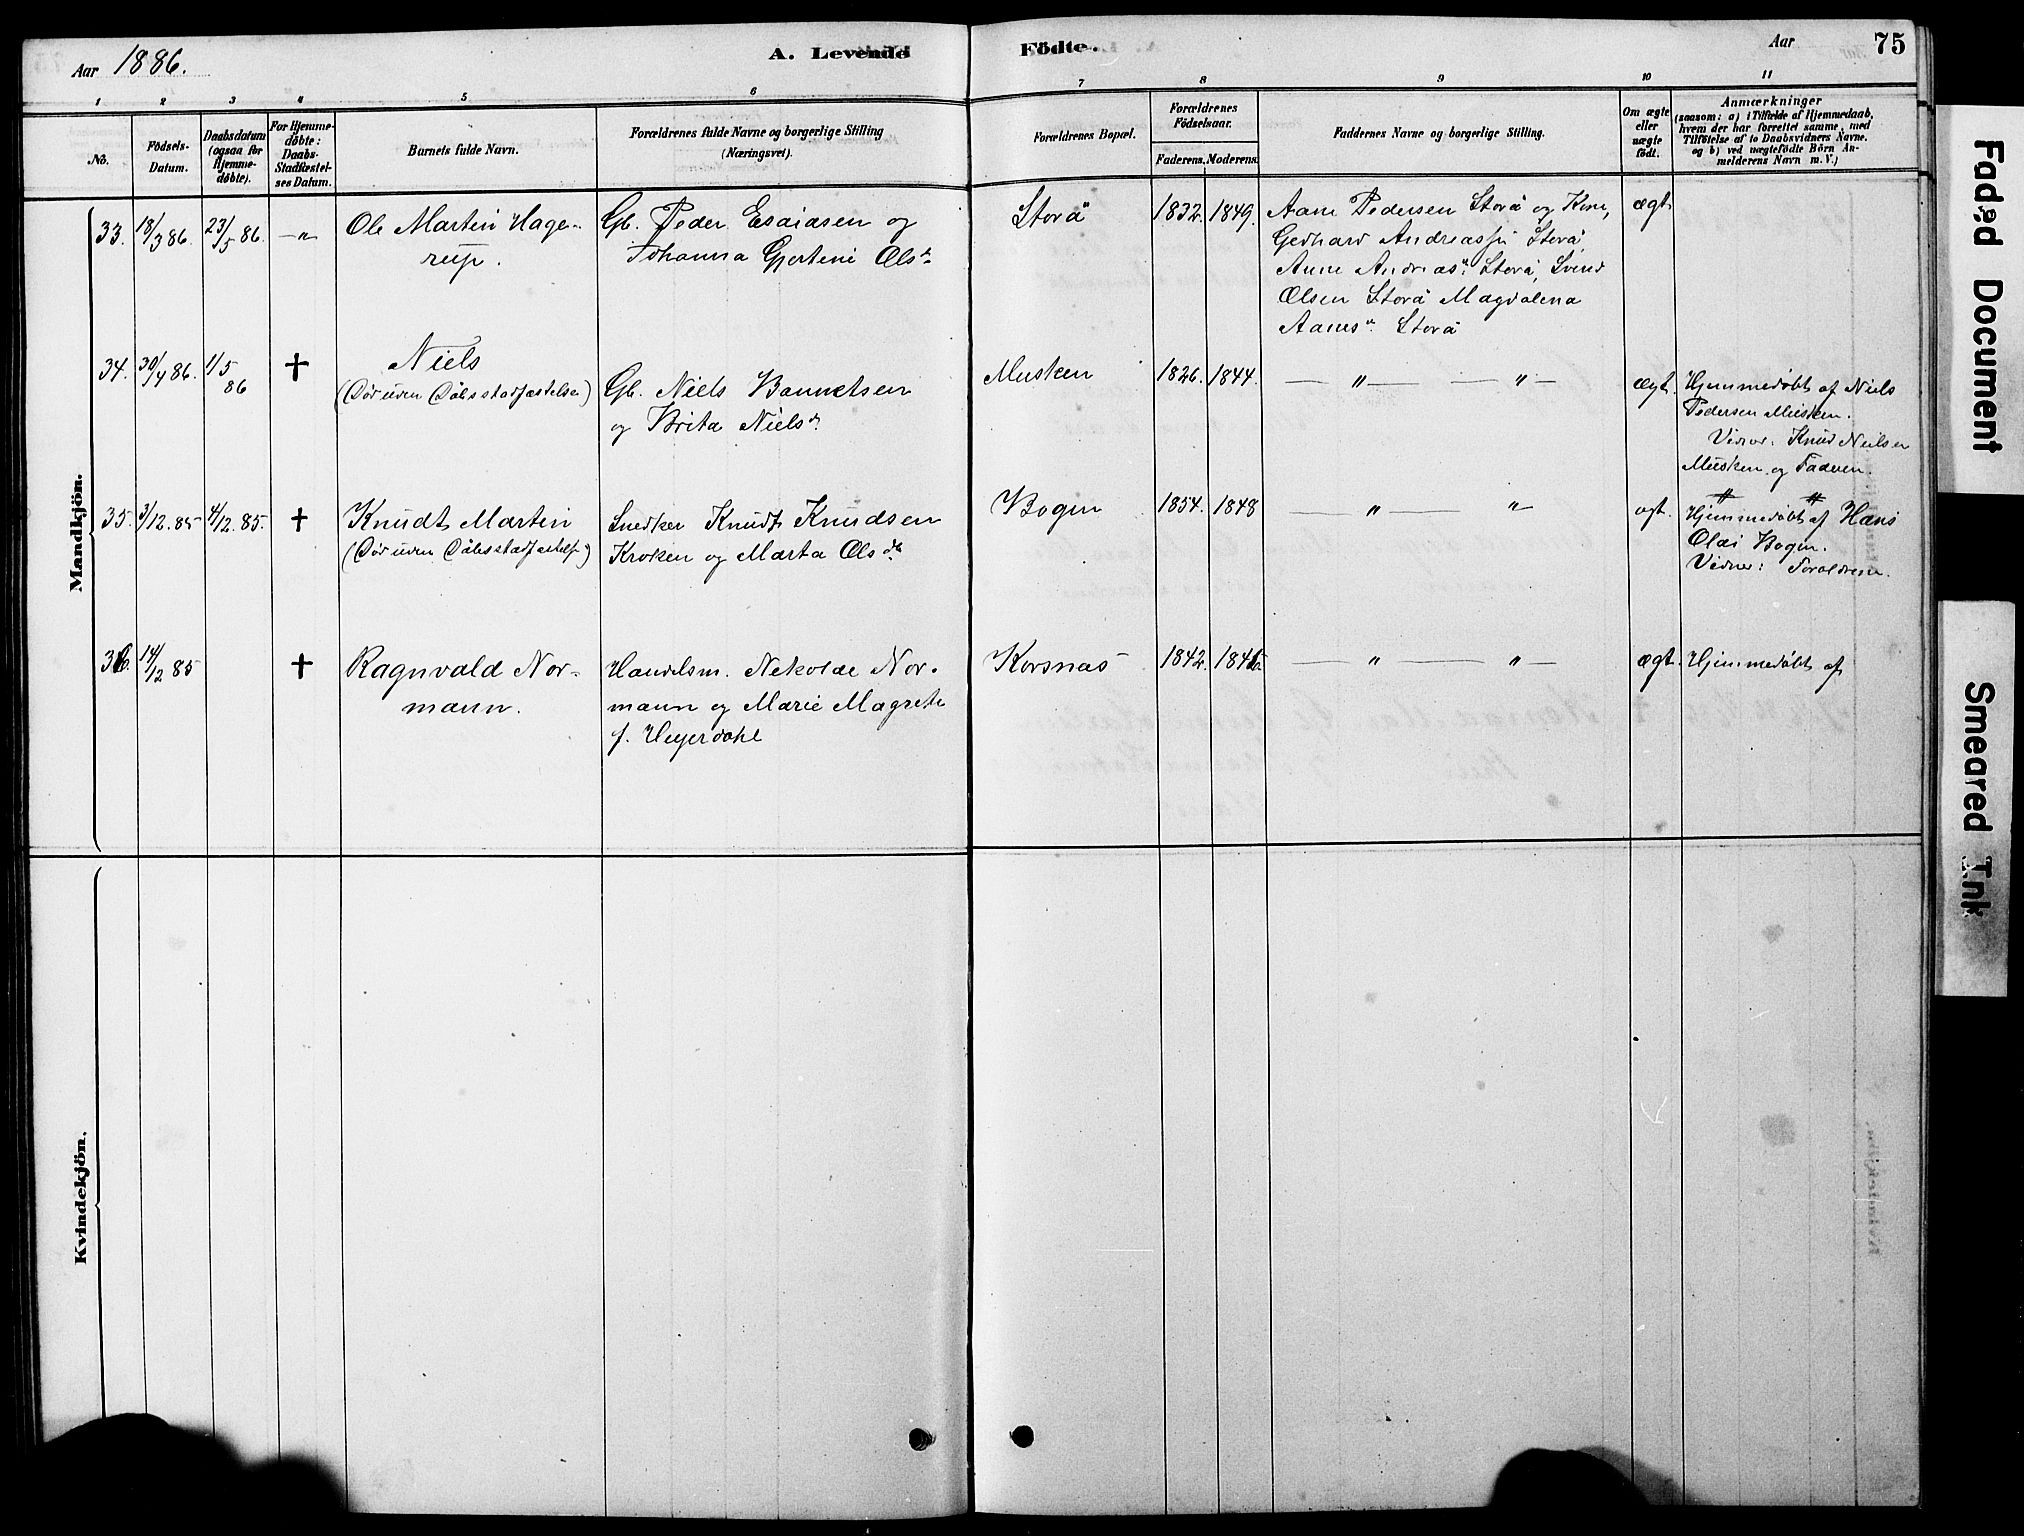 Aar 1886.
A. Levende
Födte.
Aar
75
1 2 3 4 5 6 7 8 9 10 11
No.
Födsels-
Datum.
Daabsdatum
(ogsaa for
Hjemme-
döbte).
For Hjemme-
döbte:
Daabs-
Stadfæstel-
ses Datum.
Barnets fulde Navn.
Forældrenes fulde Navne og borgerlige Stilling
(Næringsvei).
Forældrenes Bopæl.
Forældrenes
Födselsaar.
Faderens. Moderens.
Faddernes Navne og borgerlige Stilling.
Om ægte
eller
uægte
født.
Anmærkninger
(saasom: a) i Tilfælde af Hjemmedaab,
hvem der har forrettet samme, med
Tilföielse af to Daabsvidners Navne.
og b) ved uægtefödte Börn An-
melderens Navn m. V.)
Mandkjön.
33. 18/3 86. 23/5 86. —"—
Ole Martin Hage-
rup.
Gb. Peder Esaiasen og
Johanna Gjertine Olsd.
Storå
1832. 1849.
Aane Pedersen Storå og Kone,
Gerhard Andreass. Storå,
Anne Andreasd. Storå, Svend
Olsen Storå Magdalena
Aanesd. Storå
ægt.
34. 30/4 86. 1/5 86 †
Niels
(Död uden Döbsstadfæstelse)
Gb. Niels Bannetsen
og Brita Nielsd.
Musken
1826. 1844.
— " — — " —
ægt.
Hjemmedøbt af Niels
Pedersen Musken.
Vidner: Knud Nielsen
Musken og Faderen.
35. 3/12. 85 4/12. 85. †
Knudt Martin
(Död uden Döbsstadfæstelse)
Snedker Knudt Knudsen
Kroken og Marta Olsdr.
Bogen
1854. 1848
— " — "—
ægt.
Hjemmedøbt af Hans
Olai Bogen.
Vidner: Forældrene.
36. 14/12 85 †
Ragnvald Nor-
mann.
Handelsm. Nekolae Nor-
mann og Marie Magrete
f. Heyerdahl
Korsnæs
1842. 1846.
— " — " —
ægt.
Hjemmedøbt af
Kvindekjön.
Faded Document
Smeared Ink